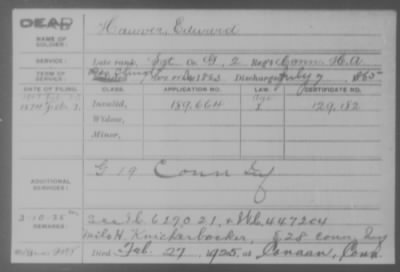 DEAD
NAME OF SOLDIER: Hawver, Edward
SERVICE: Late rank, Sgt Co. G, 2 Reg't Conn H.A.
TERM OF SERVICE: 1863, Discharged July 7, 1865
DATE OF FILING. CLASS. APPLICATION NO. LAW. CERTIFICATE NO.
Invalid, 189,664 129,182
Widow,
Minor,
ADDITIONAL SERVICES: G 19 Conn Inf
REMARKS: 447204
Milo H. Knickerbocker, 28 Conn Inf
Died Feb. 27, 1925, at Canaan, Conn.